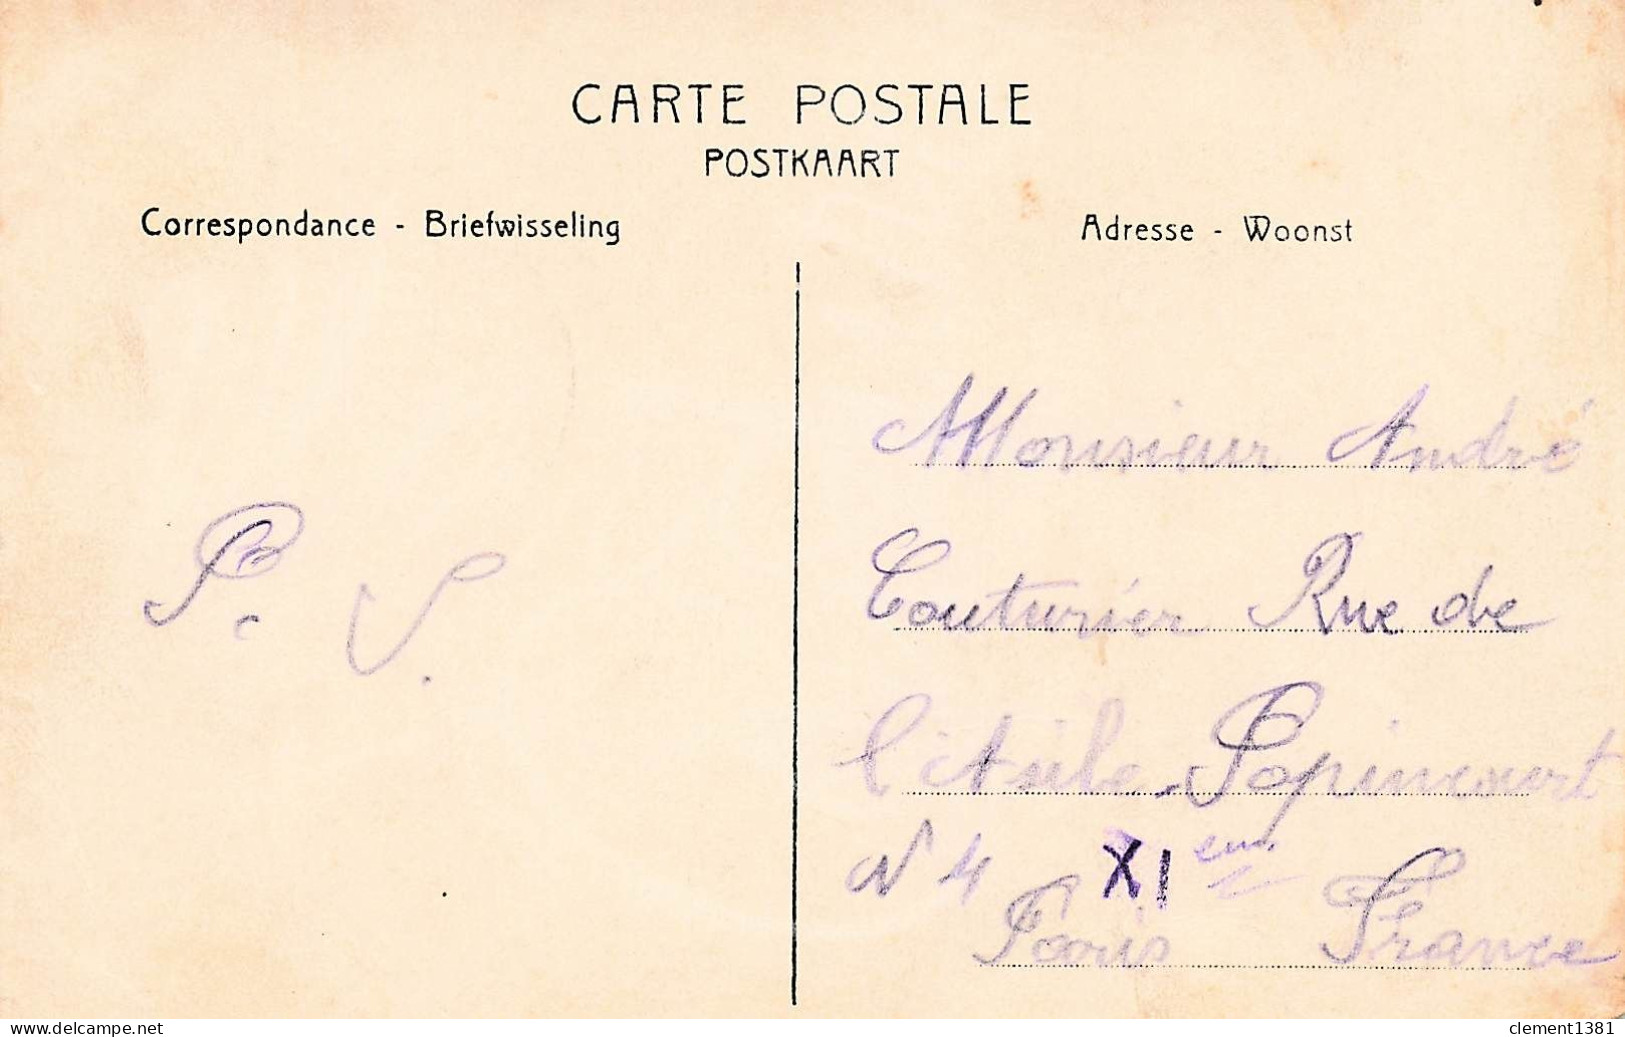 CARTE POSTALE
POSTKAART
Correspondance - Briefwisseling
Adresse - Woonst
P. V.
Monsieur André
Couturier Rue de
l'Asile-Popincourt
N 4 XI eme
Paris France
www.delcampe.net
clement1381